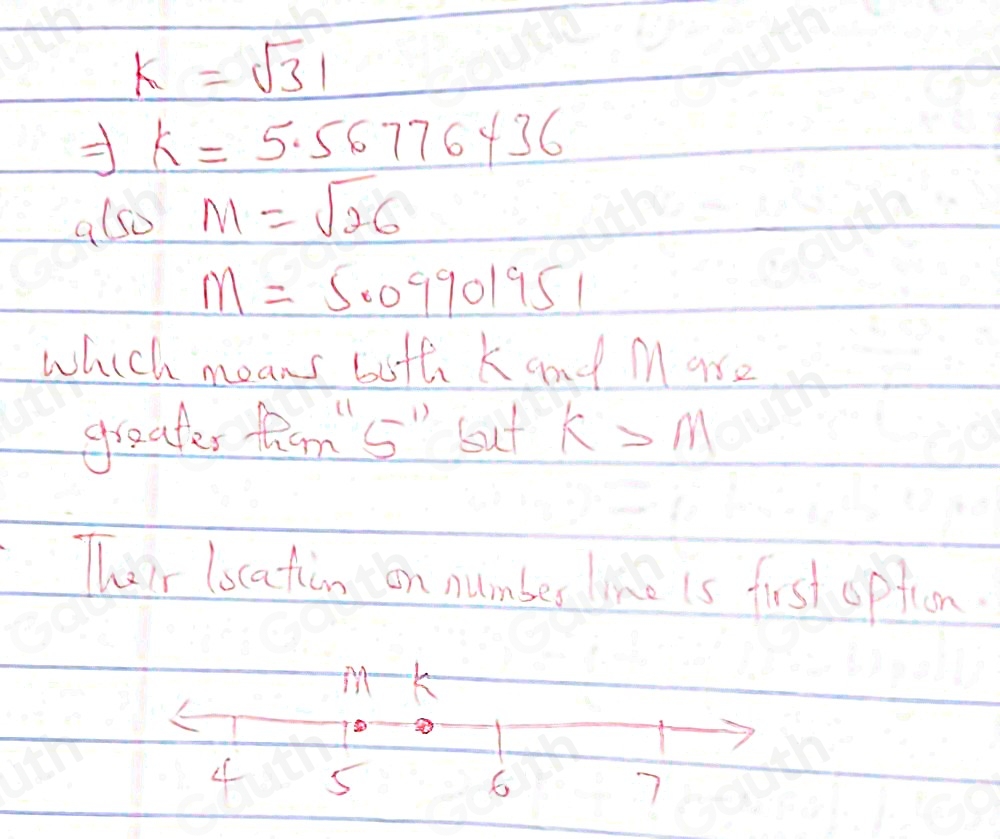 K = √31
⇒ K = 5.56776436
also M = √26
M = 5.09901951
which means both K and M are
greater than "5" but K > M
Their location on number line is first option.
M K
4 5 6 7